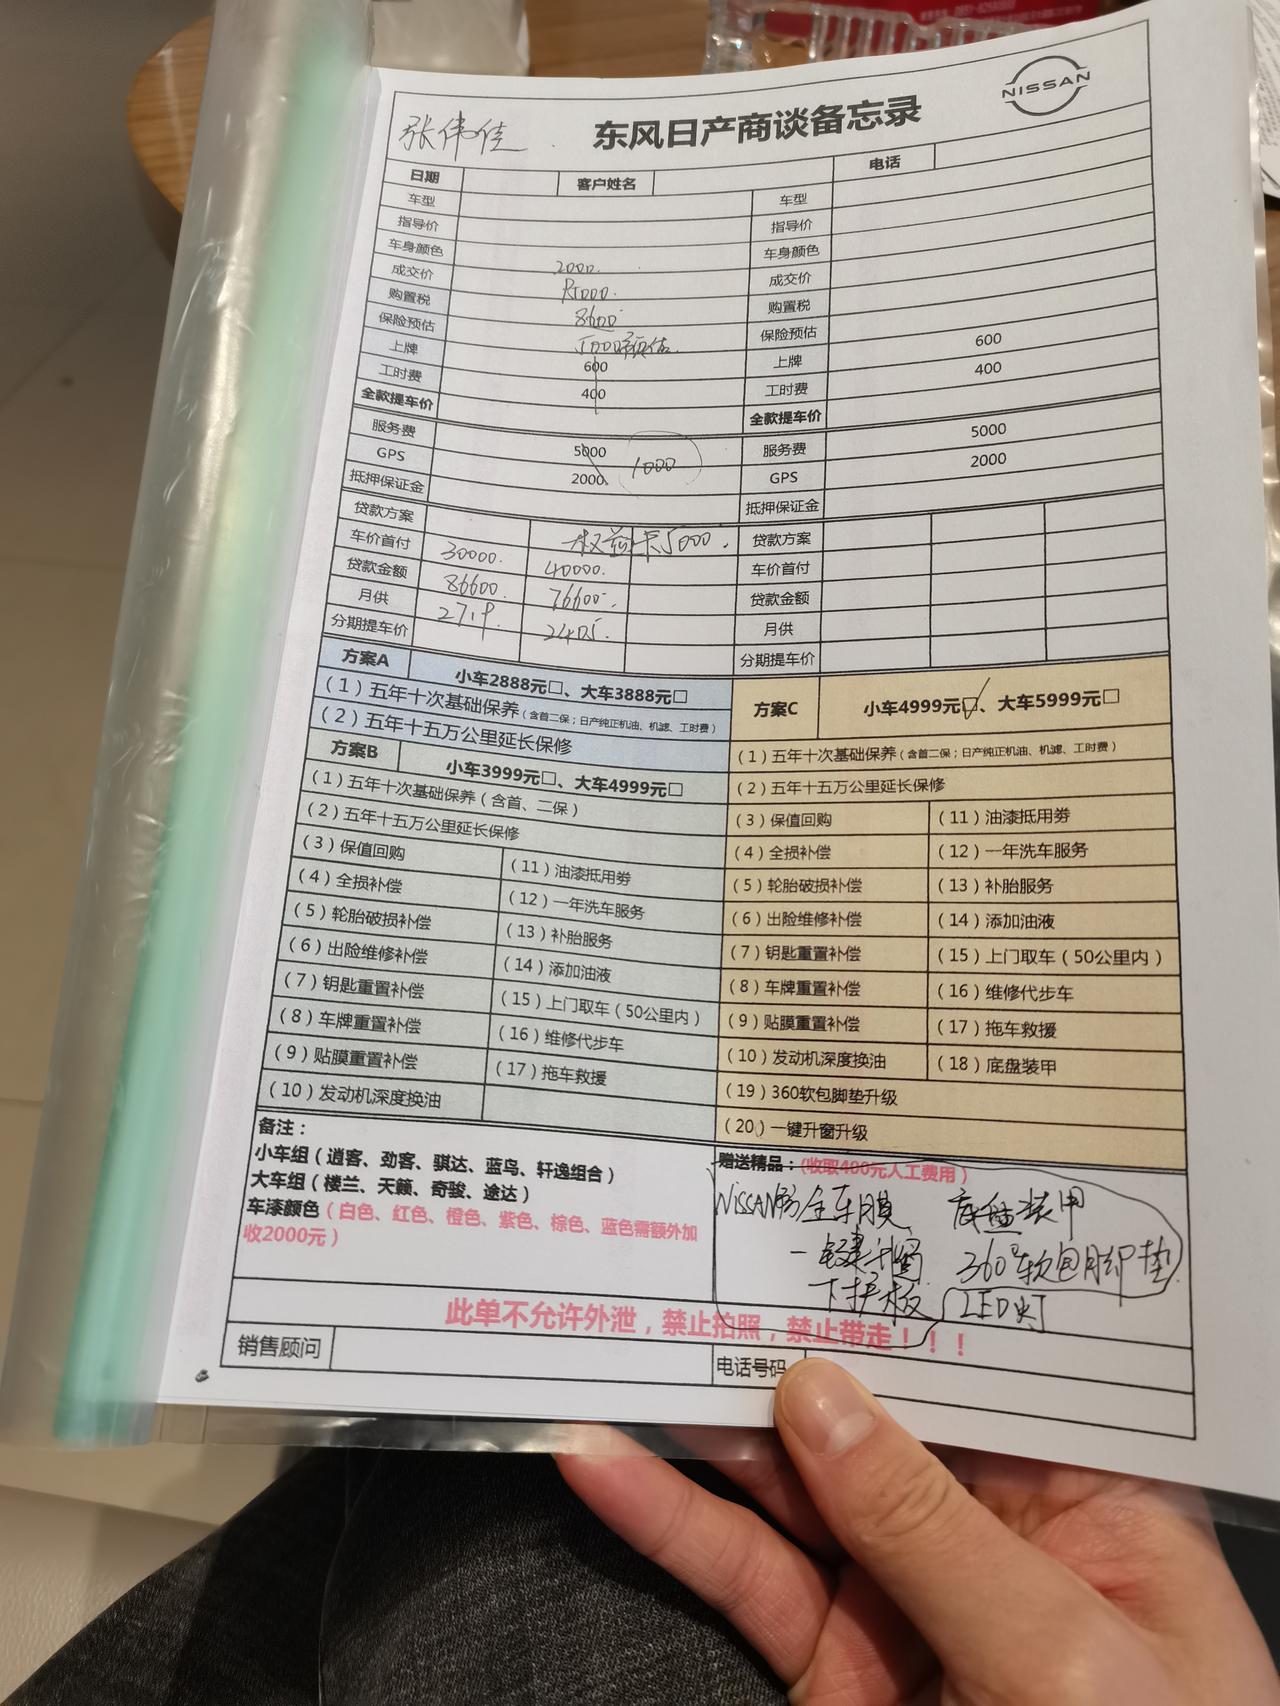 NISSAN
张伟佳
东风日产商谈备忘录
日期 客户姓名 电话
车型 车型
指导价 指导价
车身颜色 车身颜色
成交价 2000. 成交价
购置税 购置税
保险预估 8600 保险预估
上牌 600 上牌 600
工时费 400 工时费 400
全款提车价 全款提车价
服务费 5000 服务费 5000
GPS 2000 1000 GPS 2000
抵押保证金 抵押保证金
贷款方案 权益卡5000. 贷款方案
车价首付 30000. 40000. 车价首付
贷款金额 86600. 76600. 贷款金额
月供 2405. 月供
分期提车价 分期提车价
方案A 小车2888元□、大车3888元□
(1)五年十次基础保养(含首二保;日产纯正机油、机滤、工时费)
(2)五年十五万公里延长保修
方案B 小车3999元□、大车4999元□
(1)五年十次基础保养(含首、二保)
(2)五年十五万公里延长保修
(3)保值回购 (11)油漆抵用券
(4)全损补偿 (12)一年洗车服务
(5)轮胎破损补偿 (13)补胎服务
(6)出险维修补偿 (14)添加油液
(7)钥匙重置补偿 (15)上门取车(50公里内)
(8)车牌重置补偿 (16)维修代步车
(9)贴膜重置补偿 (17)拖车救援
(10)发动机深度换油
方案C 小车4999元□、大车5999元□
(1)五年十次基础保养(含首二保;日产纯正机油、机滤、工时费)
(2)五年十五万公里延长保修
(3)保值回购 (11)油漆抵用劵
(4)全损补偿 (12)一年洗车服务
(5)轮胎破损补偿 (13)补胎服务
(6)出险维修补偿 (14)添加油液
(7)钥匙重置补偿 (15)上门取车(50公里内)
(8)车牌重置补偿 (16)维修代步车
(9)贴膜重置补偿 (17)拖车救援
(10)发动机深度换油 (18)底盘装甲
(19)360软包脚垫升级
(20)一键升窗升级
备注:
小车组(逍客、劲客、骐达、蓝鸟、轩逸组合)
大车组(楼兰、天籁、奇骏、途达)
车漆颜色(白色、红色、橙色、紫色、棕色、蓝色需额外加
收2000元)
赠送精品:(收取400元人工费用)
NISSAN 全车膜 底盘装甲
一键升窗 360°软包脚垫
下护板 LED灯
此单不允许外泄,禁止拍照,禁止带走!!!
销售顾问 电话号码